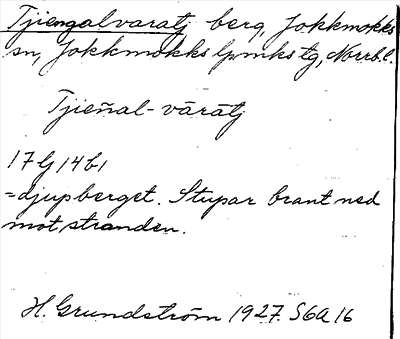 Tjiengalvaratj berg, Jokkmokks
sn, Jokkmokks lpmkstg, Norrb.l.
Tjieñal-vāratj
17 Ij 14 b1
=djupberget. Stupar brant ned
mot stranden.
H. Grundström 1927. S6a 16